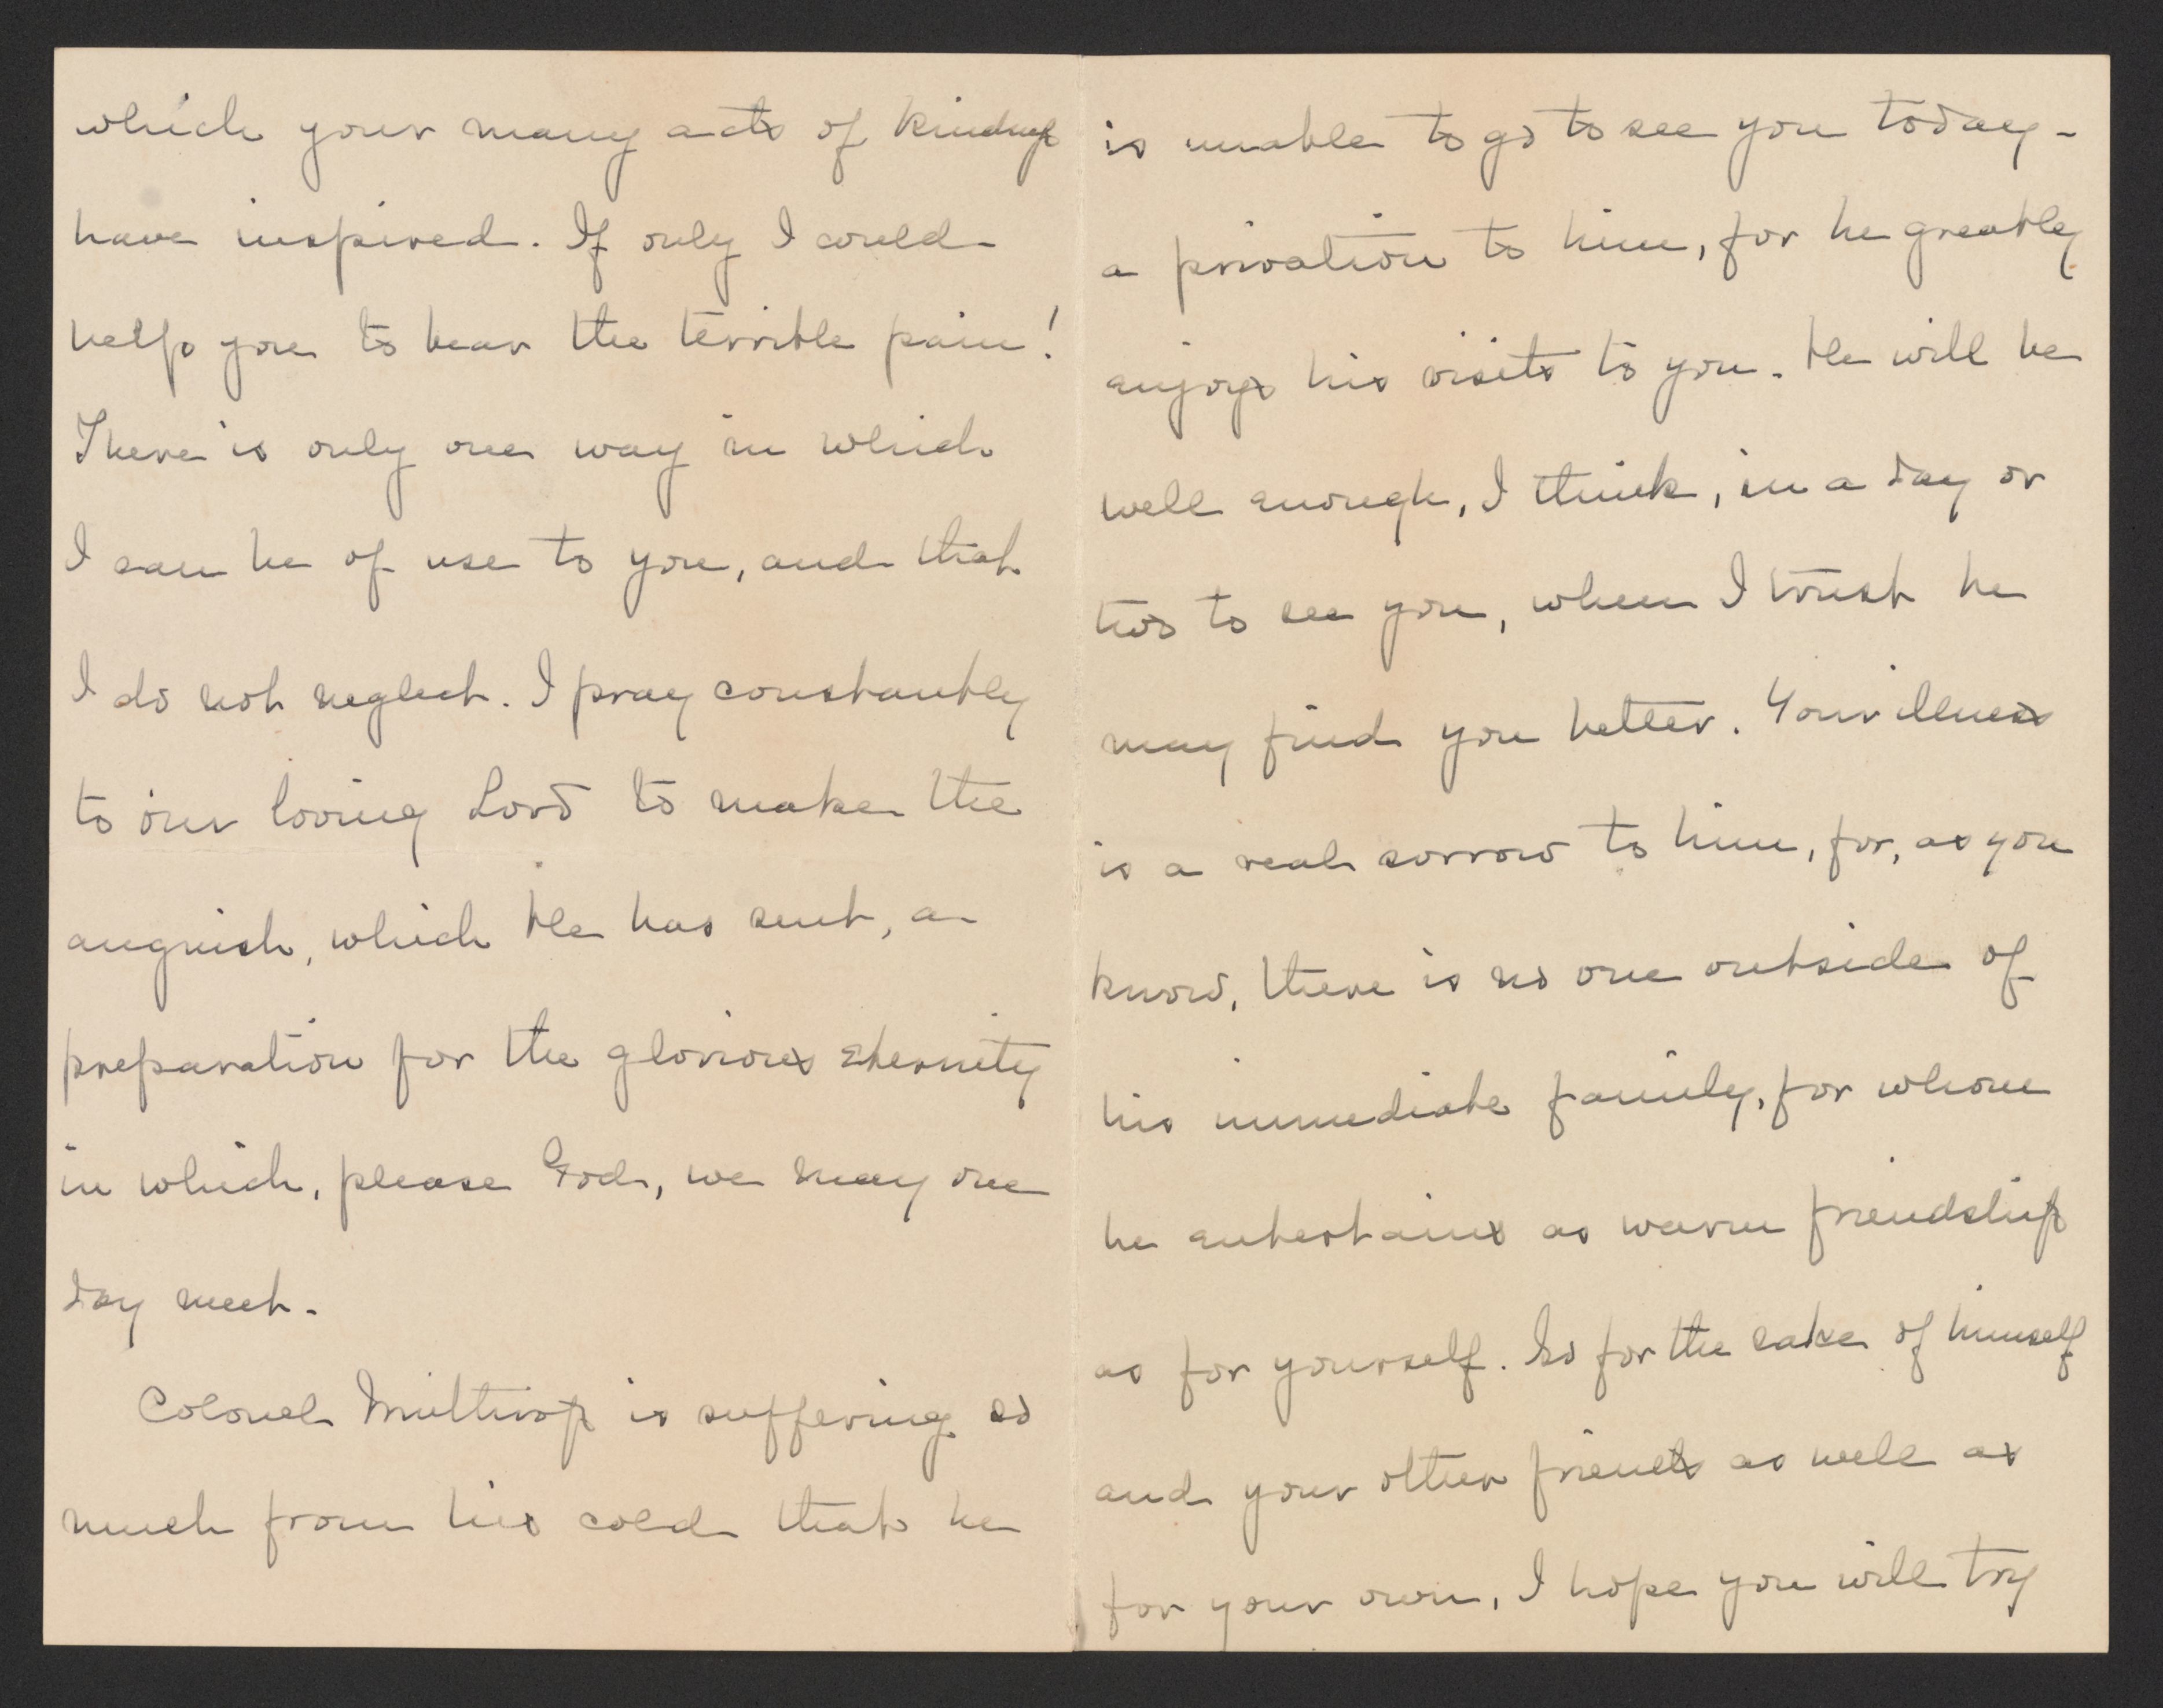 which your many acts of kindness
have inspired. If only I could
help you to bear the terrible pain!
There is only one way in which
I can be of use to you, and that
I do not neglect. I pray constantly
to our loving Lord to make the
anguish, which He has sent, a
preparation for the glorious eternity
in which, please God, we may one
day meet.
Colonel Winthrop is suffering so
much from his cold that he
is unable to go to see you today-
a privation to him, for he greatly
enjoys his visits to you. He will be
well enough, I think, in a day or
two to see you, when I trust he
may find you better. Your illness
is a real sorrow to him, for, as you
know, there is no one outside of
his immediate family, for whom
he entertains as warm friendship
as for yourself. So for the sake of himself
and your other friends as well as
for your own, I hope you will try